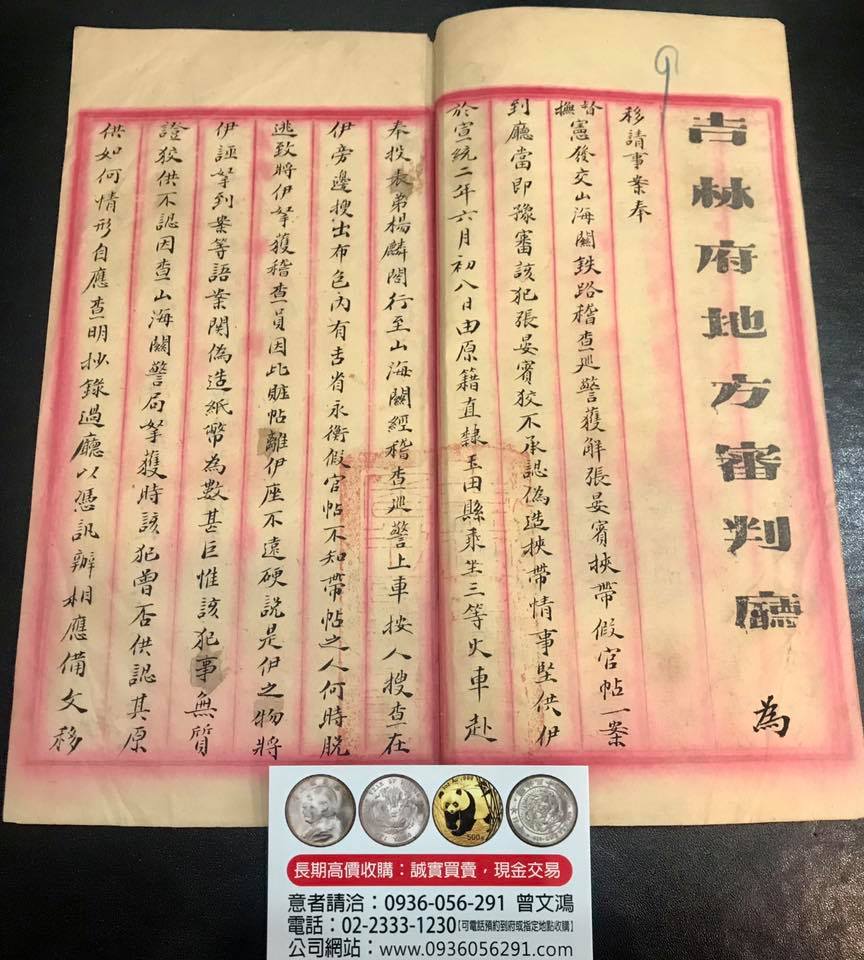 吉林府地方審判廳 為
移請事案奉
督撫憲發交山海關鉄路稽查巡警獲解張晏賓挾帶假官帖一案
到廳當即豫審該犯張晏賓狡不承認偽造挾帶情事堅供伊
於宣統二年六月初八日由原籍直隸玉田縣乘坐三等火車赴
奉投表弟楊麟閣行至山海關經稽查巡警上車按人搜查在
伊旁邊搜出布包內有吉省永衡假官帖不知帶帖之人何時脫
逃致將伊拏獲稽查員因此賍帖離伊座不遠硬說是伊之物將
伊誣拏到案等語案関偽造紙幣為數甚巨惟該犯事無質
證狡供不認因查山海關警局拏獲時該犯曾否供認其原
供如何情形自應查明抄錄過廳以憑訊辦相應備文移
長期高價收購：誠實買賣，現金交易
意者請洽：0936-056-291 曾文鴻
電話：02-2333-1230【可電話預約到府或指定地點收購】
公司網站：www.0936056291.com